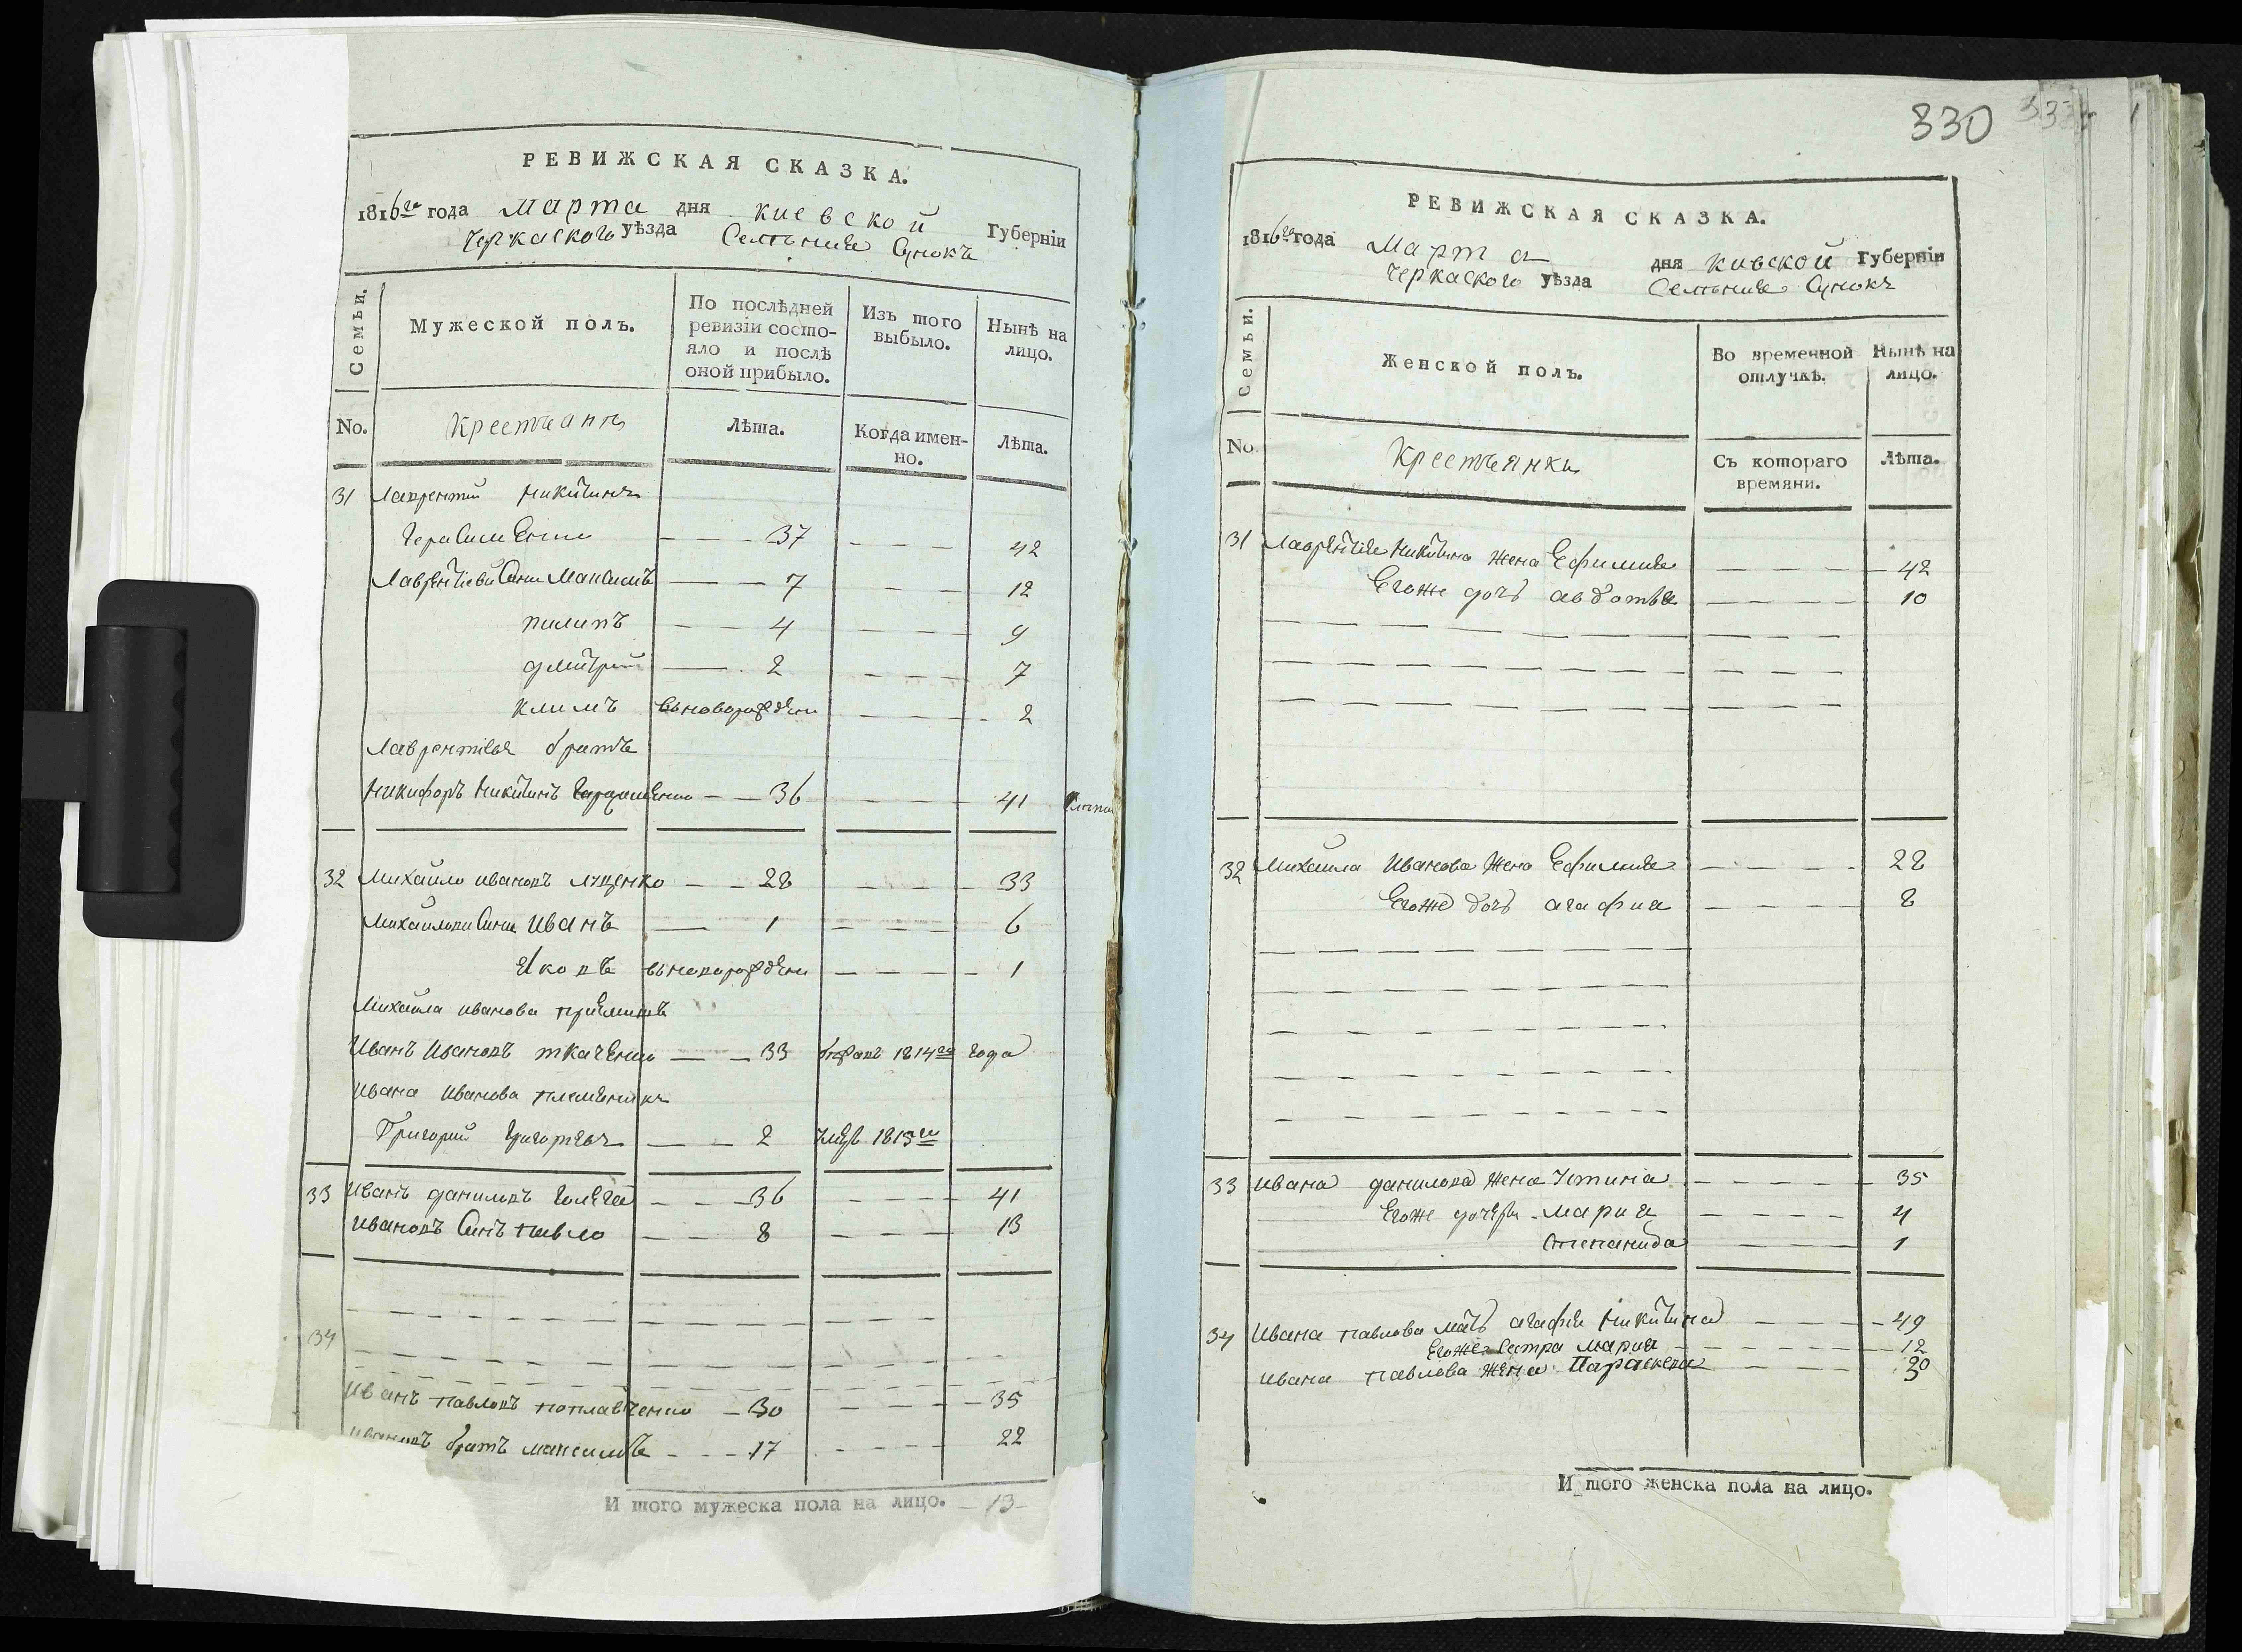 РЕВИЖСКАЯ СКАЗКА.
1816го года Марта дня киевской Губерніи
Черкаского уѣзда Селѣния Сунокъ
Семьи.
Мужеской полъ.
По послѣдней ревизіи состояло и послѣ оной прибыло.
Изъ того выбыло.
Нынѣ на лицо.
No.
Крестьяне
Лѣта.
Когда именно.
Лѣта.
31 Лаврентий никитинъ
Герасименко 37 42
Лаврентиеви Сини Максимъ 7 12
пилипъ 4 9
дмитрий 2 7
климъ вьноворождени 2
Лаврентиевъ братъ
Никифоръ Никитинъ 36 41
32 Михайло ивановъ луценко 28 33
Михайлови Сини Иванъ 1 6
Яковъ вьноворождени 1
Михайла иванова приемишъ
Иванъ Ивановъ ткаченко 33 1814го года
Ивана Иванова племеникъ
Григорий Григорьевъ 2 1813го
33 Иванъ даниловъ 36 41
Ивановъ Синъ павло 8 13
34
Иванъ павловъ поплавченко 30 35
Ивановъ братъ максимъ 17 22
И того мужеска пола на лицо. 13
330
РЕВИЖСКАЯ СКАЗКА.
1816го года Марта дня кивской Губерніи
Черкаского уѣзда Селѣния Сунокъ
Семьи.
Женской полъ.
Во временной отлучкѣ.
Нынѣ на лицо.
No
Крестьянки
Съ котораго времяни.
Лѣта.
31 Лаврентия Никитина жена Ефимия 42
Егоже дочь авдотья 10
32 Михайла Иванова жена Ефимия 28
Егоже дочь агафия 8
33 Ивана данилова жена Устиния 35
Егоже дочери мария 4
Степанида 1
34 Ивана павлова мать агафия Никитина 49
Егоже Сестра мария 12
Ивана павлова жена Параскева 30
И того женска пола на лицо.